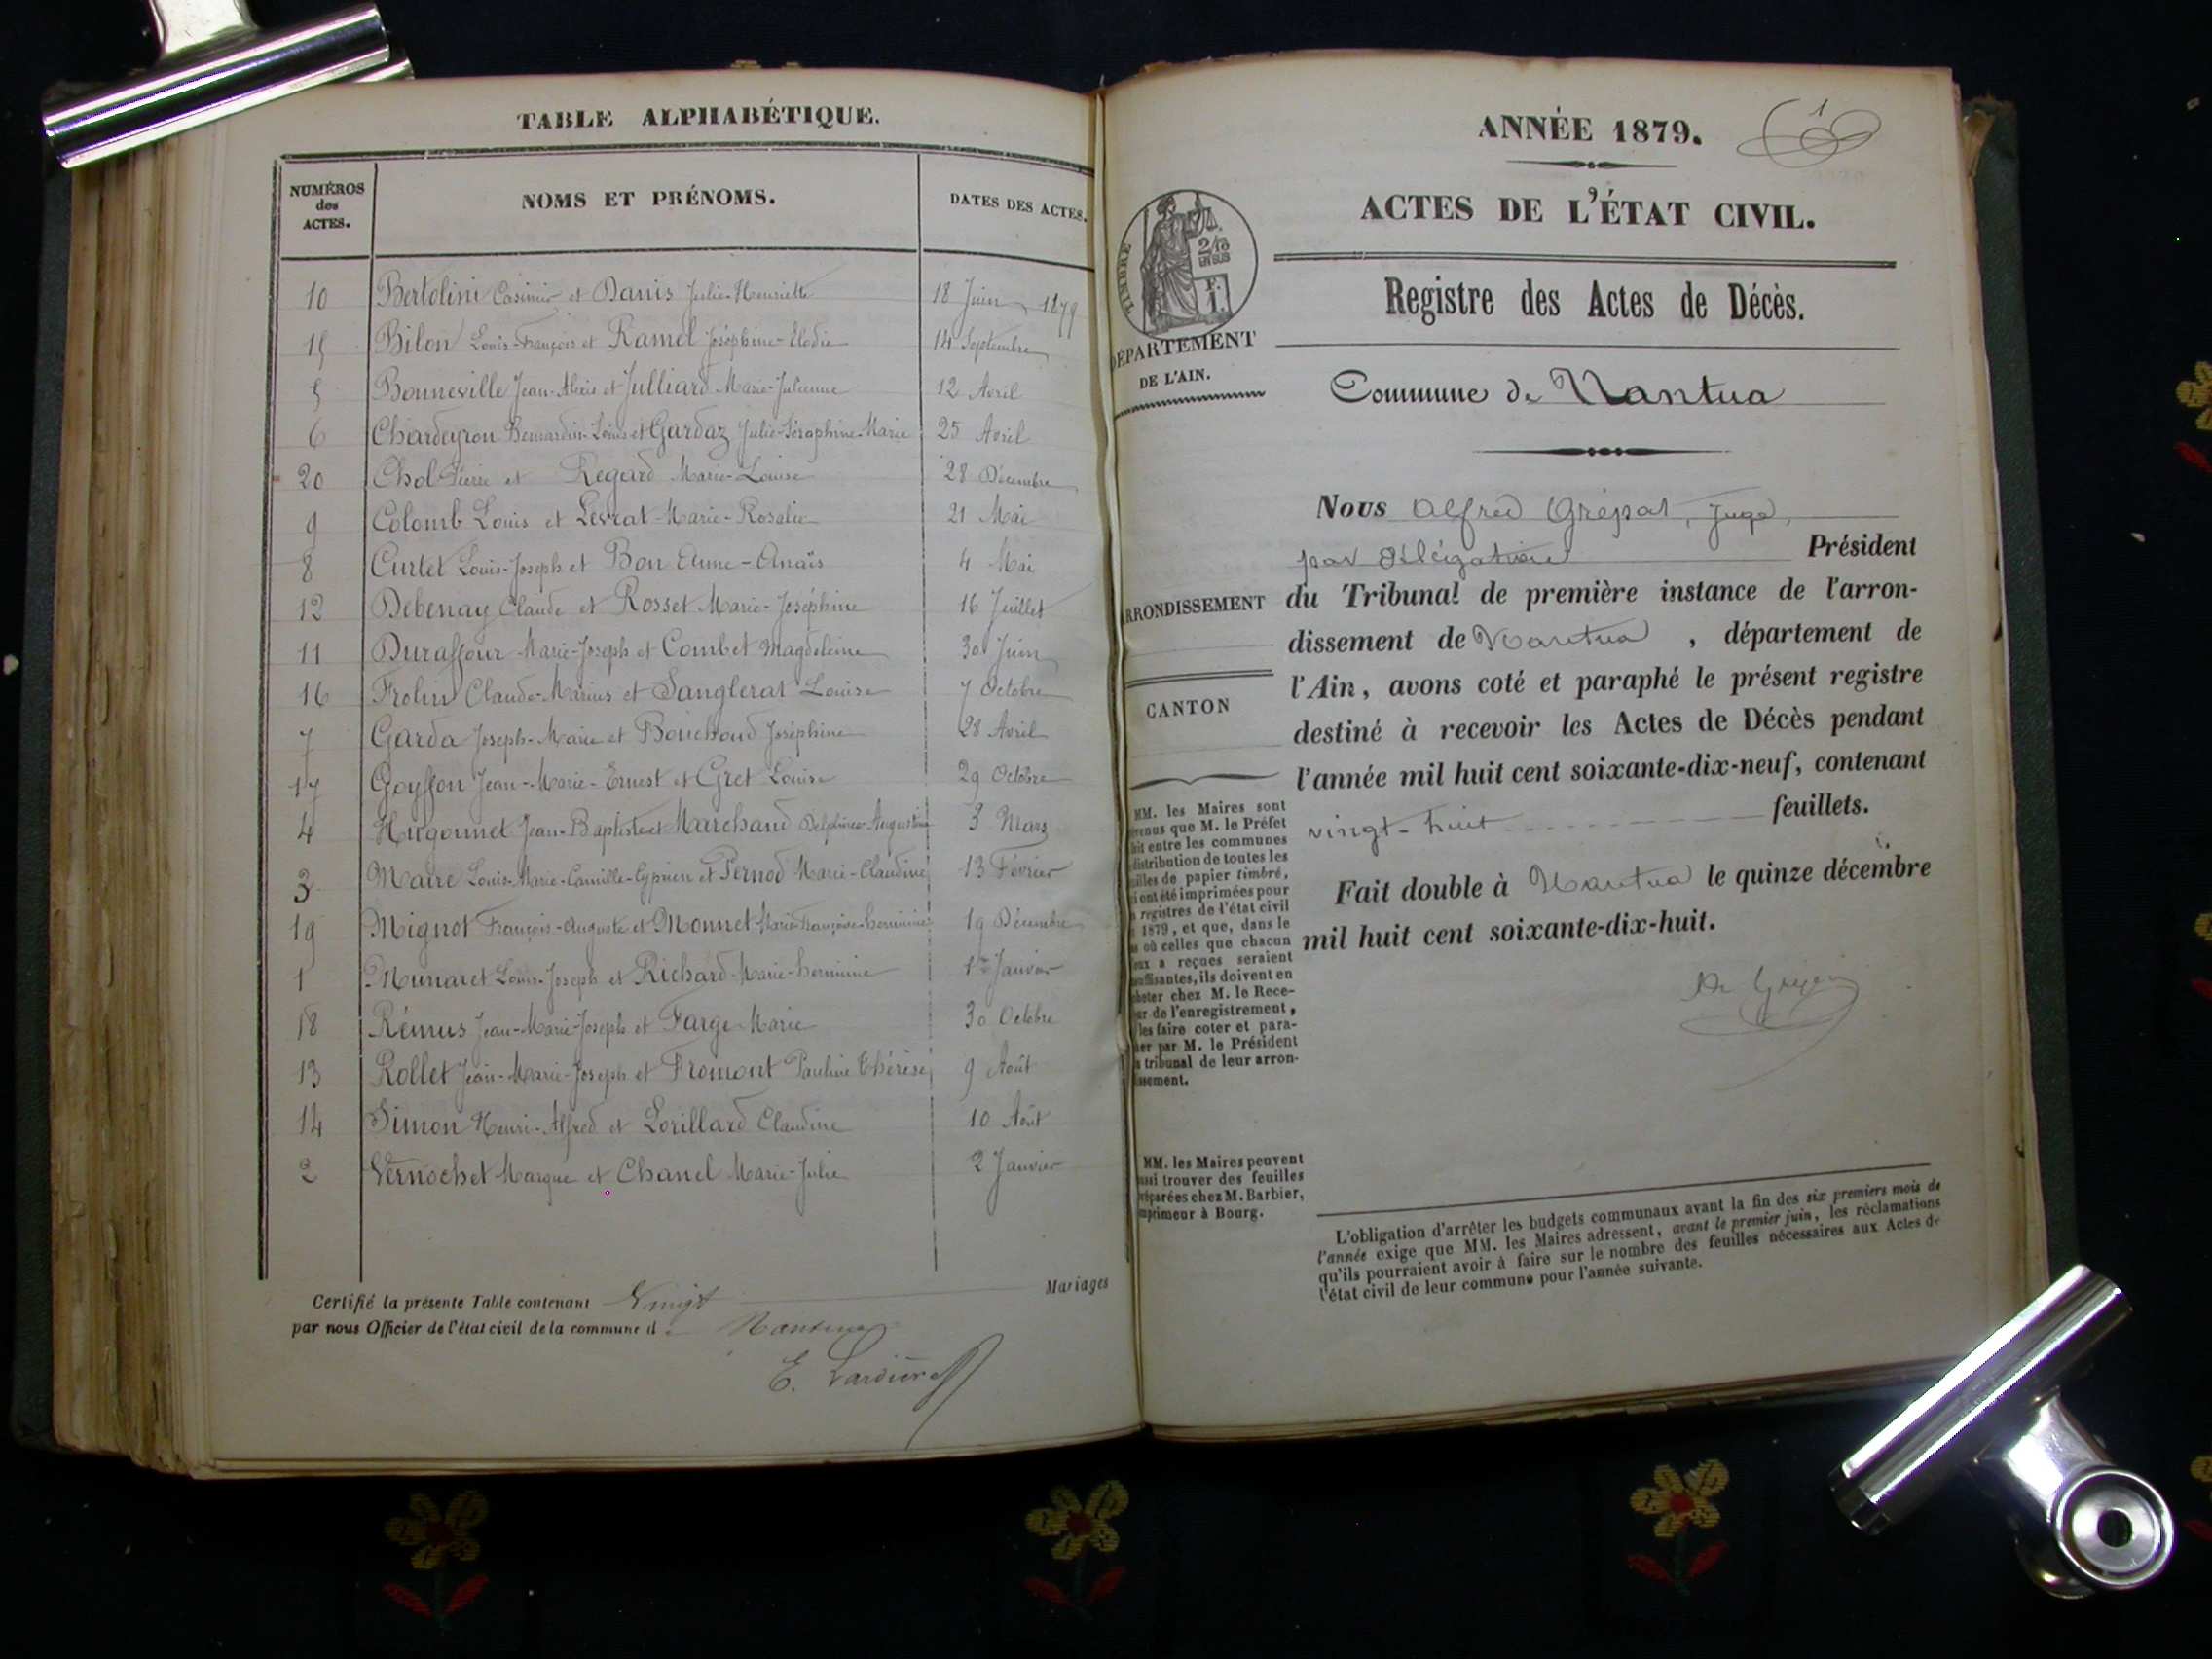 TABLE ALPHABÉTIQUE.
NUMÉROS
des
ACTES.
NOMS ET PRÉNOMS.
DATES DES ACTES.
10 Bertolini Casimir et Danis Julie-Henriette 18 Juin 1879
15 Bilon Louis-François et Ramel Joséphine-Elodie 14 Septembre
5 Bonneville Jean-Alexis et Julliard Marie-Julienne 12 Avril
6 Chardeyron Bernardin-Louis et Gardaz Julie-Séraphine-Marie 25 Avril
20 Chol Pierre et Regard Marie-Louise 28 Décembre
9 Colomb Louis et Levrat Marie-Rosalie 21 Mai
8 Curtet Louis-Joseph et Bon Anaïs 4 Mai
12 Debenay Claude et Rosset Marie-Joséphine 16 Juillet
11 Duraffour Marie-Joseph et Combet Magdeleine 30 Juin
16 Frolin Claude-Marius et Sanglerat Louise 7 Octobre
7 Garda Joseph-Marie et Bouchoud Joséphine 28 Avril
17 Goyffon Jean-Marie-Ernest et Gret Louise 29 Octobre
4 Hugonnet Jean-Baptiste et Marchand Delphine-Augustine 3 Mars
3 Maire Louis-Marie-Camille-Cyprien et Pernod Marie-Claudine 13 Février
19 Mignot François-Auguste et Monnet Marie-Françoise-herminie 19 Décembre
1 Munaret Louis-Joseph et Richard Marie-herminie 1er Janvier
18 Rémus Jean-Marie-Joseph et Farge Marie 30 Octobre
13 Rollet Jean-Marie-Joseph et Fromont Pauline Thérèse 9 Août
14 Simon Henri-Alfred et Lorillard Claudine 10 Août
2 Vernochet Marque et Chanel Marie-Julie 2 Janvier
Certifié la présente Table contenant Vingt Mariages
par nous Officier de l'état civil de la commune d Nantua
E.
ANNÉE 1879.
1
ACTES DE L'ÉTAT CIVIL.
Registre des Actes de Décès.
Commune de Nantua
TIMBRE
2/10
EN SUS
F.
1.
DÉPARTEMENT
DE L'AIN.
ARRONDISSEMENT
CANTON
MM. les Maires sont
que M. le Préfet
entre les communes
distribution de toutes les
de papier timbré,
ont été imprimées pour
registres de l'état civil
1879, et que, dans le
où celles que chacun
a reçues seraient
ils doivent en
chez M. le Rece-
de l'enregistrement,
les faire coter et para-
par M. le Président
tribunal de leur arron-
MM. les Maires peuvent
trouver des feuilles
chez M. Barbier,
à Bourg.
Nous Alfred Grépat, Juge,
par délégation Président
du Tribunal de première instance de l'arron-
dissement de Nantua , département de
l'Ain, avons coté et paraphé le présent registre
destiné à recevoir les Actes de Décès pendant
l'année mil huit cent soixante-dix-neuf, contenant
vingt-huit feuillets.
Fait double à Nantua le quinze décembre
mil huit cent soixante-dix-huit.
L'obligation d'arrêter les budgets communaux avant la fin des six premiers mois de
l'année exige que MM. les Maires adressent, avant le premier juin, les réclamations
qu'ils pourraient avoir à faire sur le nombre des feuilles nécessaires aux Actes de
l'état civil de leur commune pour l'année suivante.